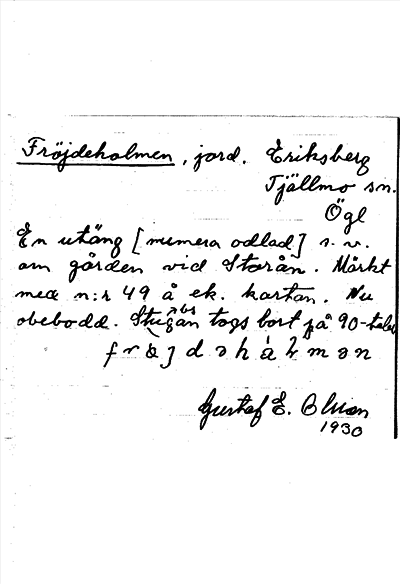 Fröjdeholmen, jord. Eriksberg
Tjällmo sn.
Ögl
En utäng [numera odlad] s. v.
om gården vid Storån. Märkt
med n:r 49 å ek. kartan. Nu
obebodd. Stugan togs bort på 90-talet
Gustaf E.
1930